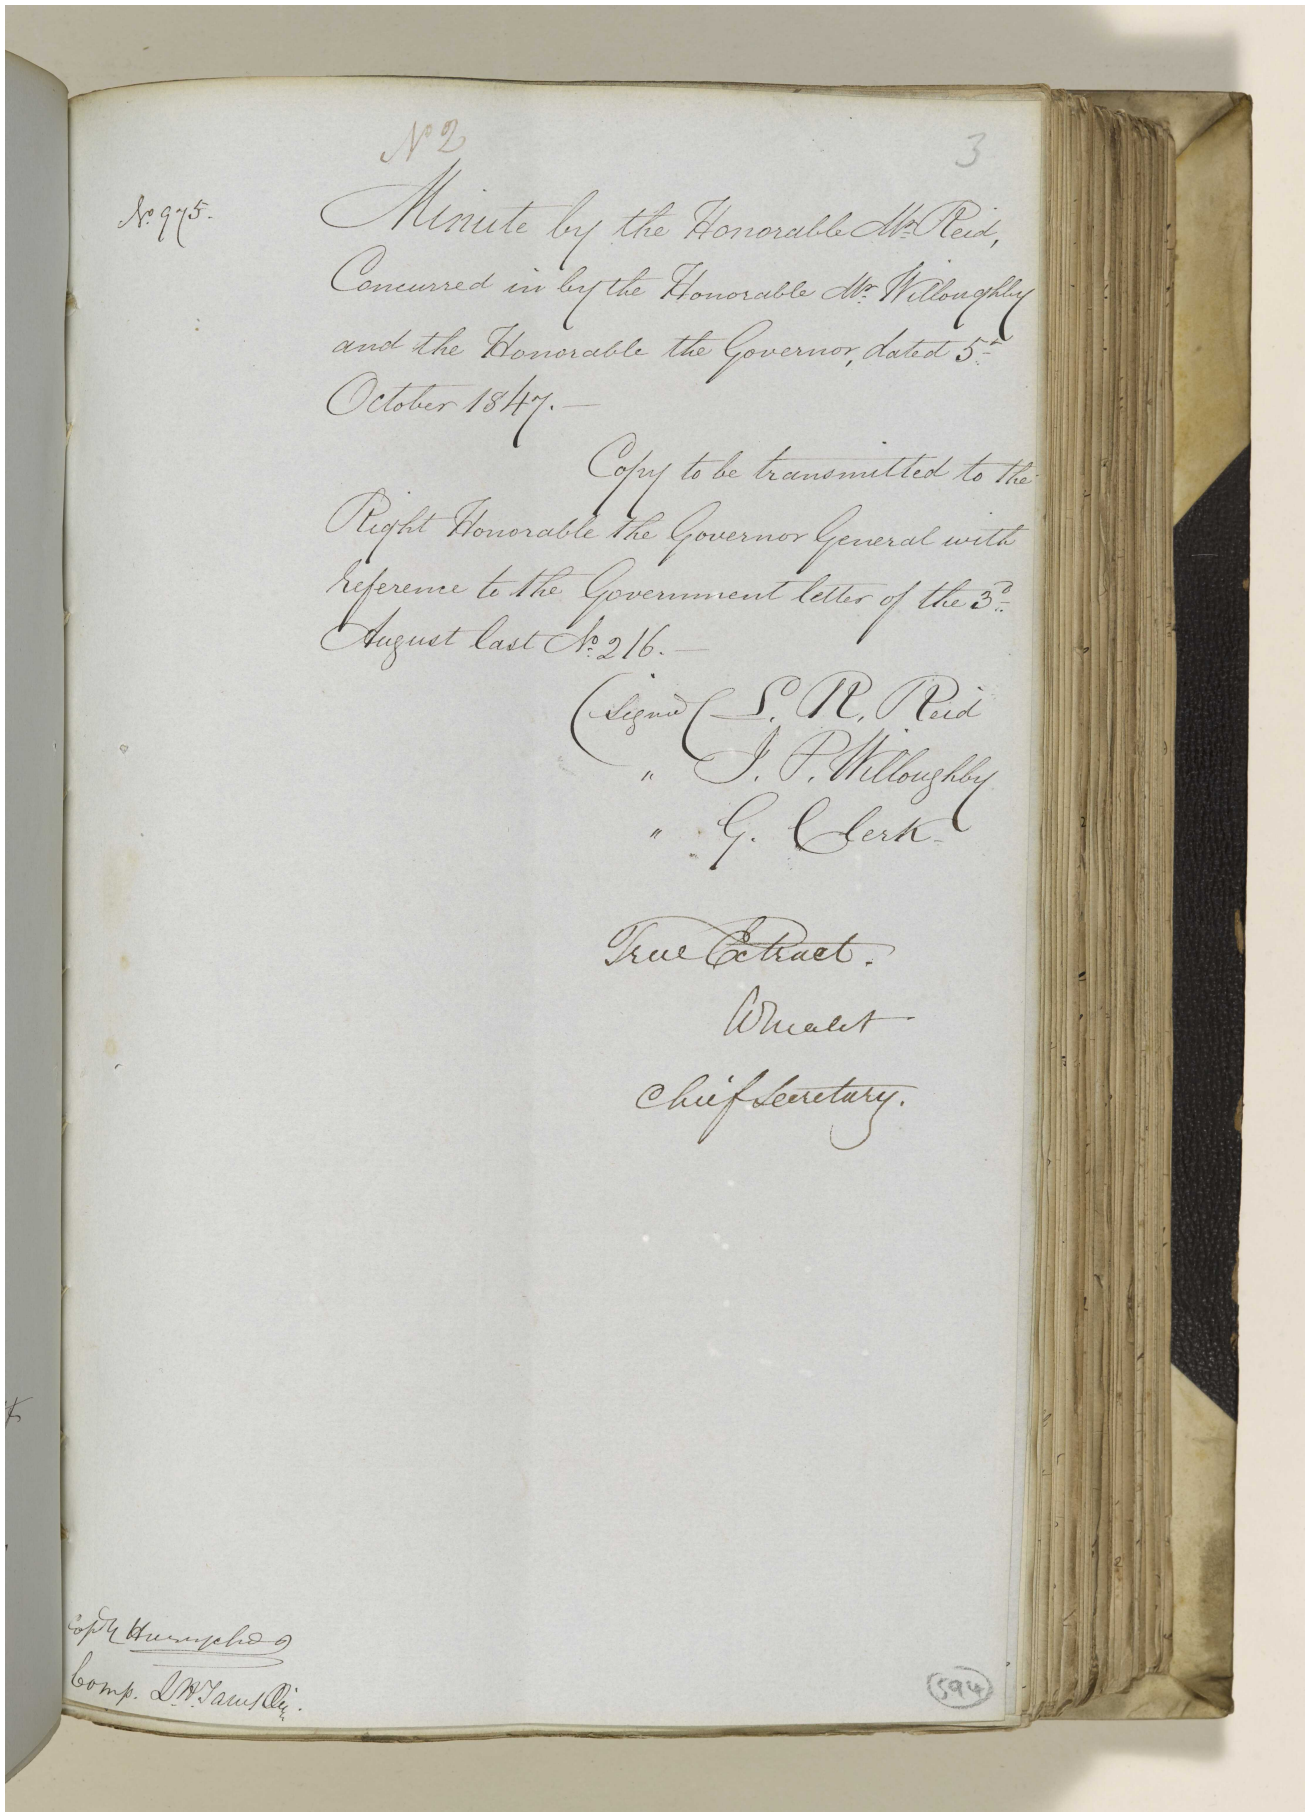 No 2
3
No. 975.
Minute by the Honorable Mr. Reid,
Concurred in by the Honorable Mr. Willoughby
and the Honorable the Governor, dated 5th
October 1847.—
Copy to be transmitted to the
Right Honorable the Governor General with
reference to the Government letter of the 3d.
August last No. 216.—
(Signed ( L. R. Reid
" J. P. Willoughby
" G. Clerk
True Extract.
A Malet
Chief Secretary.
Copd by
Comp.
594